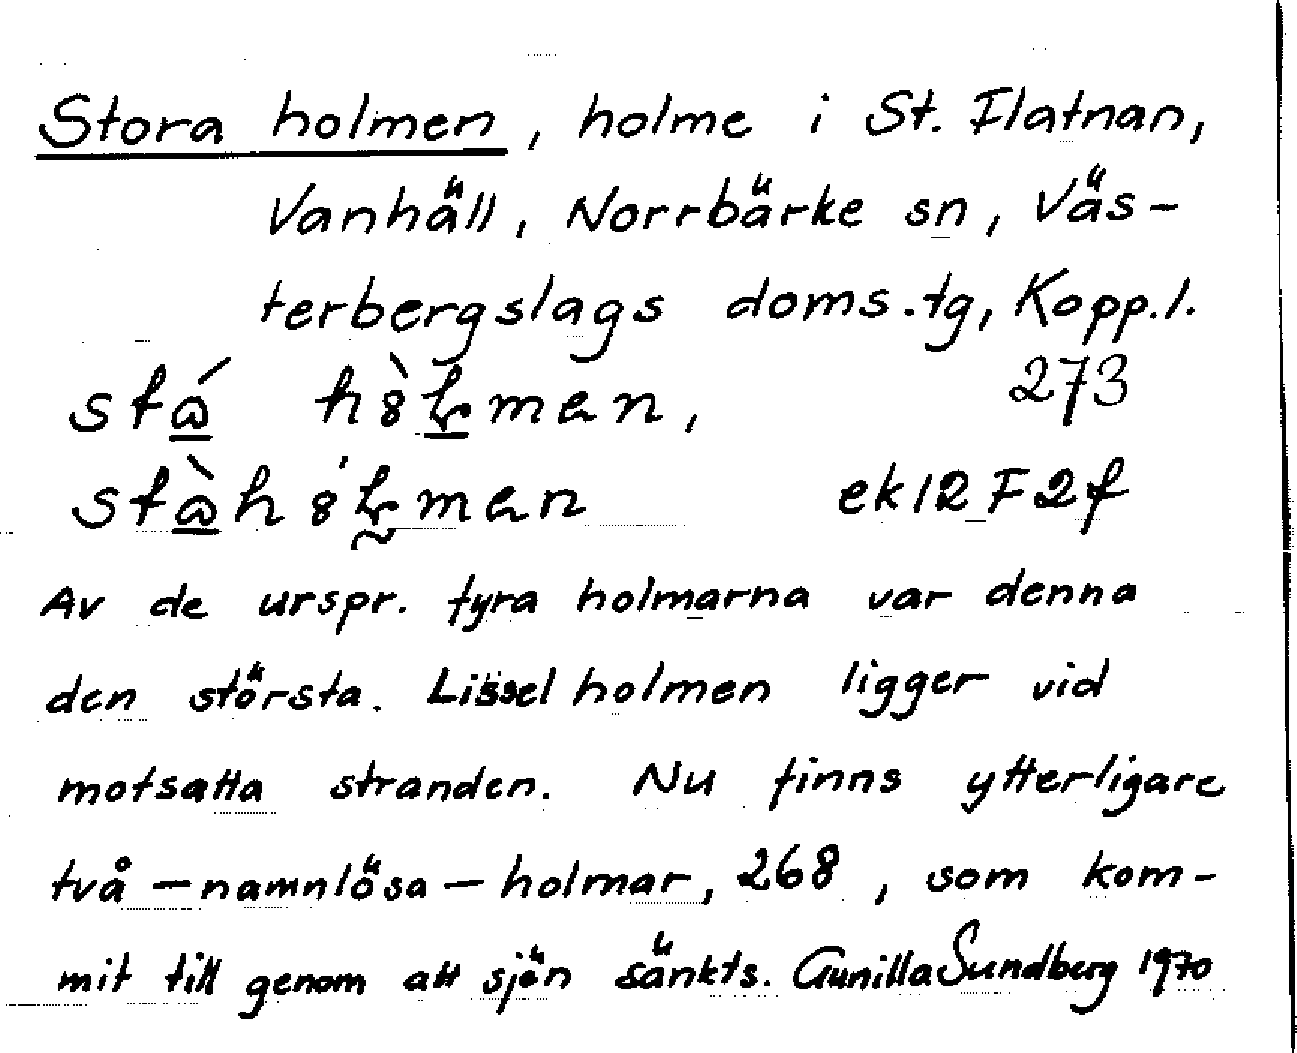 Stora holmen, holme i St. Flatnan,
Vanhäll, Norrbärke sn, Väs-
terbergslags doms.tg, Kopp.l.
273
ek 12 F 2 f
Av de urspr. fyra holmarna var denna
den största. Lissel holmen ligger vid
motsatta stranden. Nu finns ytterligare
två - namnlösa - holmar, 268, som kom-
mit till genom att sjön sänkts. Gunilla Sundberg 1970